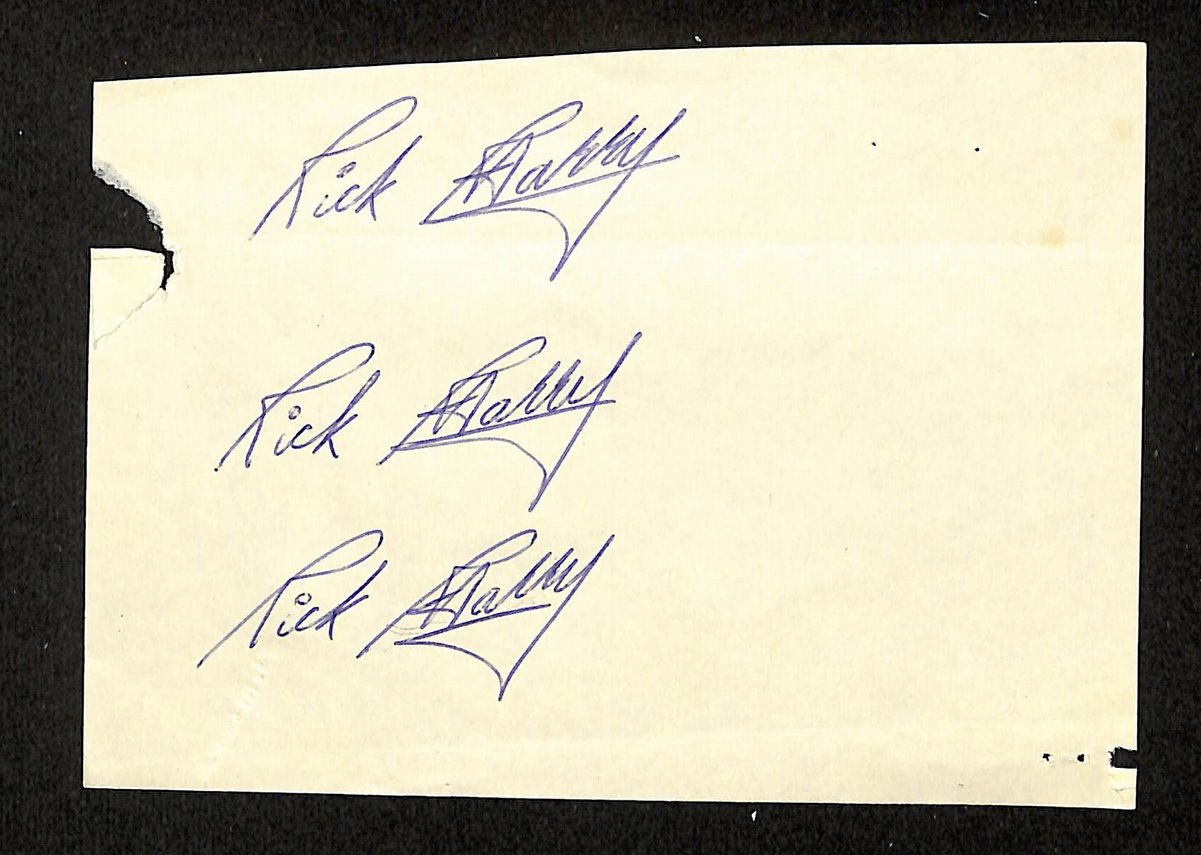 Rick Parry
Rick Parry
Rick Parry